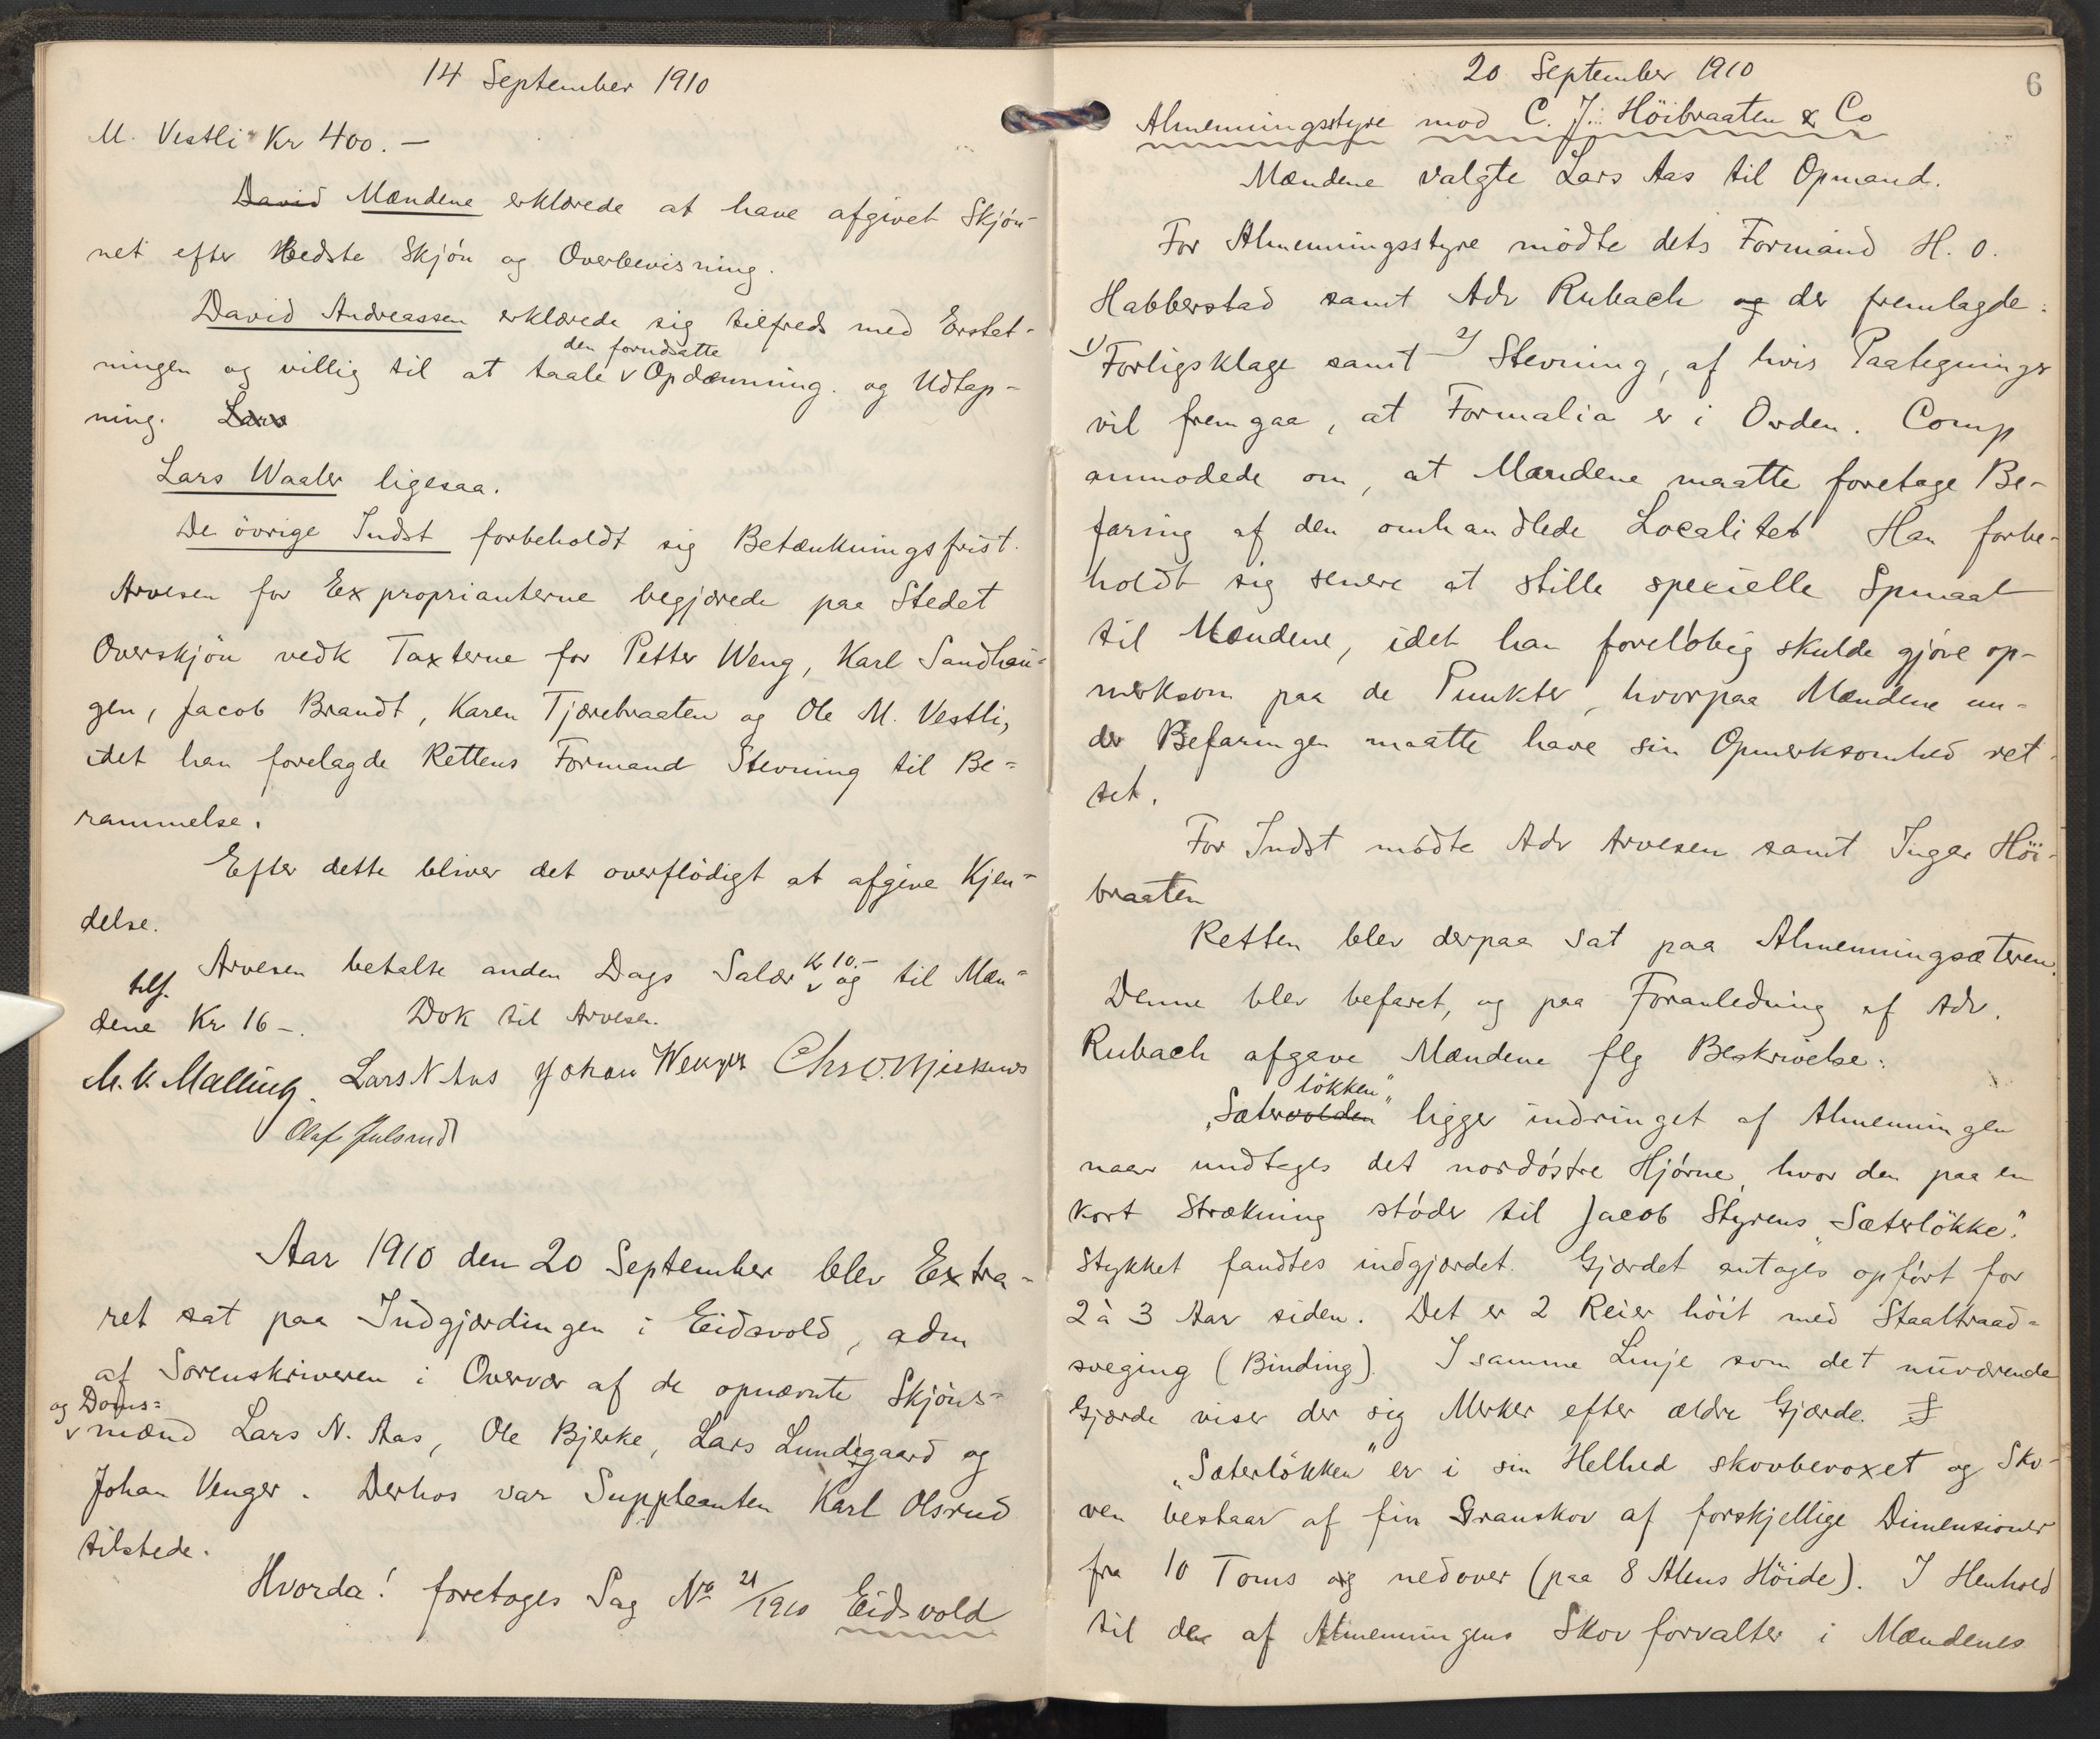 14 September 1910
M. Vestli Kr 400.—
David Mændene erklærede at have afgivet Skjön-
net efter bedste Skjön og Overbevisning.
David Andreassen erklærede sig tilfreds med Erstat-
den forudsatte
ningen og villig til at taale v Opdæmning. og Udtap-
ning. Lars
Lars Waaler ligesaa.
De övrige Indst forbeholdt sig Betænkningsfrist.
Arvesen for Exproprianterne begjærede paa Stedet
Overskjön vedk Taxterne for Petter Weng, Karl Sandhau-
gen, Jacob Brandt, Karen Tjærebraaten og Ole M. Vestli,
idet han forelagde Rettens Formand Stevning til Be-
rammelse.
Efter dette bliver det overflödigt at afgive Kjen-
delse.
Kr 10.-
Arvesen betalte anden Dags Salær v og til Mæn-
tils.
dene Kr 16 –. Dok til Arvesen.
M. V. Malling. Lars N Aas Johan Wenger Chr. O.
Olaf Julsrud
Aar 1910 den 20 September blev Extra-
ret sat paa Indgjærdingen i Eidsvold, adm
af Sorenskriveren i Overvær af de opnævnte Skjöns-
og Doms-
v mænd Lars N. Aas, Ole Bjerke, Lars Lundsgaard og
Johan Venger. Derhos var Suppleanten Karl Olsrud
tilstede.
Hvorda! foretoges Sag No 21/1910 Eidsvold
20 September 1910
6
Almenningsstyre mod C. J. Höibraaten & Co
Mændene valgte Lars Aas til Opmand.
For Almenningsstyre mödte dets Formand H. O.
Habberstad samt Adv Rubach og der fremlagde:
1) Forligsklage samt 2) Stevning, af hvis Paategninger
vil fremgaa, at Formalia er i Orden. Comp
anmodede om, at Mændene maatte foretage Be-
faring af den omhandlede Localitet Han forbe-
holdt sig senere at stille specielle Spmaal
til Mændene, idet han forelöbig skulde gjöre op-
merksom paa de Punkter, hvorpaa Mændene un-
der Befaringen maatte have sin Opmerksomhed ret-
tet.
For Indst mödte Adv Arvesen samt Inger Höi-
braaten
Retten blev derpaa sat paa Almenningsæteren.
Denne blev befaret, og paa Foranledning af Adv.
Rubach afgave Mændene flg Beskrivelse:
lökken"
„Sætervolden" ligger indringet af Almenningen
naar undtages det nordöstre Hjörne, hvor den paa en
kort Strækning stöder til Jacob Styrens „Sæterlökke".
Stykket fandtes indgjærdet. Gjærdet antages opfört for
2 à 3 Aar siden. Det er 2 Reier höit med Staaltraad-
sveging (Binding). I samme Linje som det nuværende
Gjærde viser der sig Merker efter ældre Gjærde. S
„Sæterlökken" er i sin Helhed skovbevoxet og Sko-
ven bestaar af fin Granskov af forskjellige Dimensioner
fra 10 Toms og nedover (paa 8 Alens Höide). I Henhold
til den af Almenningens Skovforvalter i Mændenes